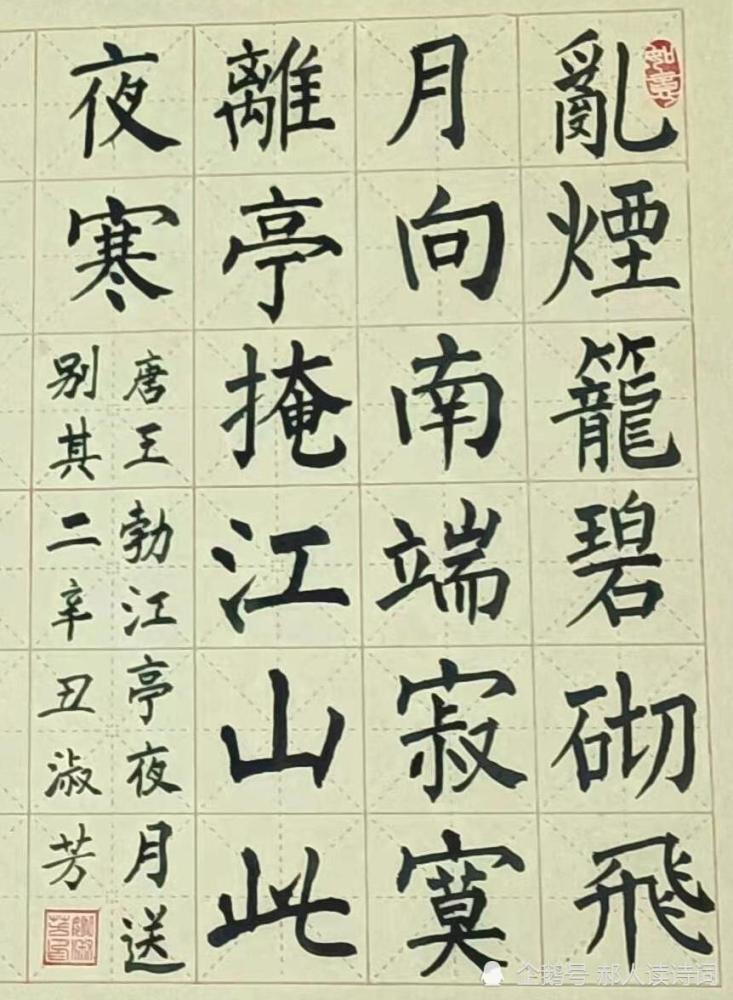 亂煙籠碧砌飛
月向南端寂寞
離亭掩江山此
夜寒
唐王勃江亭夜月送
别其二辛丑淑芳
企鹅号 郝人读诗词